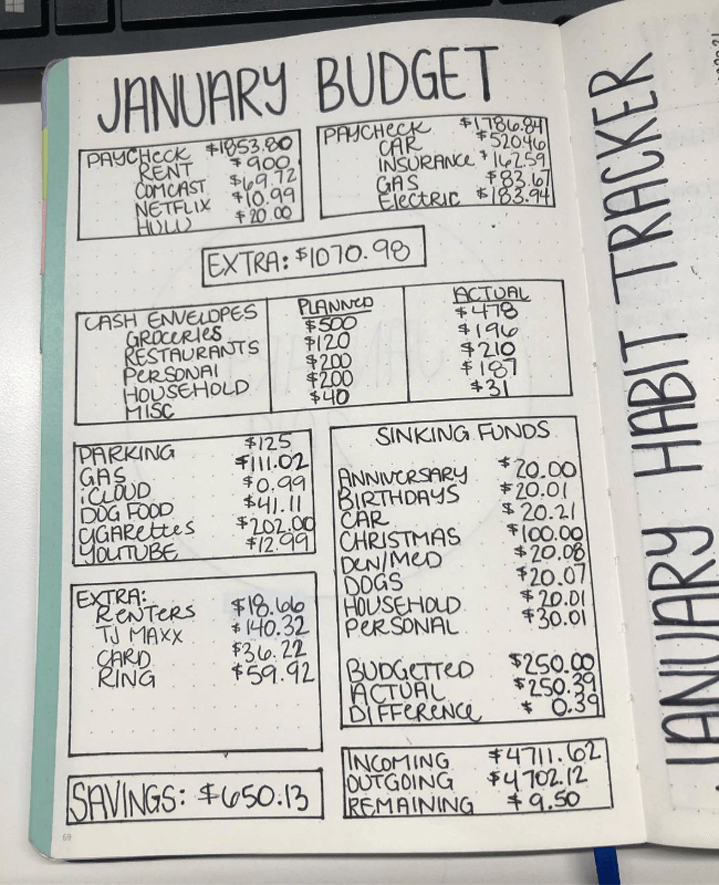 JANUARY BUDGET
PAYCHECK $1853.80
RENT $900
COMCAST $69.72
NETFLIX $10.99
HULU $20.00
PAYCHECK $1786.84
CAR $520.46
INSURANCE $162.59
GAS $83.67
Electric $183.94
EXTRA: $1070.98
CASH ENVELOPES PLANNED ACTUAL
GROCERIES $500 $478
RESTAURANTS $120 $196
PERSONAL $200 $210
HOUSEHOLD $200 $187
MISC $40 $31
PARKING $125
GAS $111.02
iCLOUD $0.99
DOG FOOD $41.11
CIGARettes $202.00
YOUTUBE $12.99
SINKING FUNDS
ANNIVERSARY $20.00
BIRTHDAYS $20.01
CAR $20.21
CHRISTMAS $100.00
DEN/MED $20.08
DOGS $20.07
HOUSEHOLD $20.01
PERSONAL $30.01
BUDGETTED $250.00
ACTUAL $250.39
DIFFERENCE $ 0.39
EXTRA:
RENTERS $18.66
TJ MAXX $140.32
CARD $36.22
RING $59.92
SAVINGS: $650.13
INCOMING $4711.62
OUTGOING $4702.12
REMAINING $9.50
69
JANUARY HABIT TRACKER